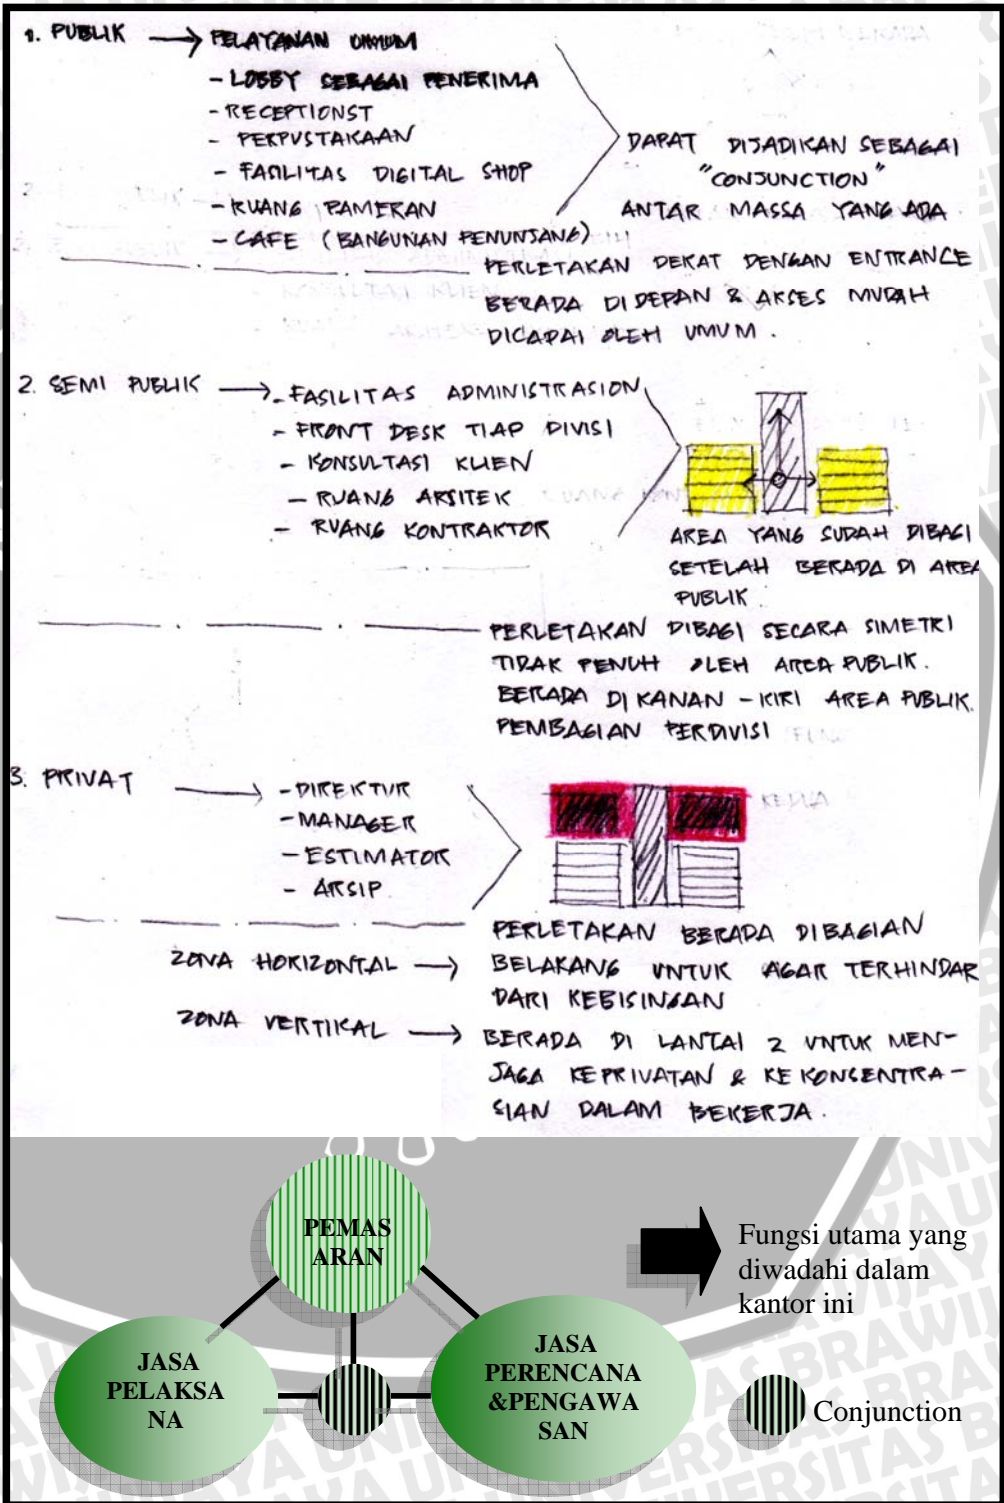 1. PUBLIK → PELAYANAN UMUM
- LOBBY SEBAGAI PENERIMA
- RECEPTIONST
- PERPUSTAKAAN
- FASILITAS DIGITAL SHOP
- RUANG PAMERAN
- CAFE (BANGUNAN PENUNJANG)
DAPAT DIJADIKAN SEBAGAI
"CONJUNCTION"
ANTAR MASSA YANG ADA
PERLETAKAN DEKAT DENGAN ENTRANCE
BERADA DI DEPAN & AKSES MUDAH
DICAPAI OLEH UMUM.
2. SEMI PUBLIK → - FASILITAS ADMINISTRASION
- FRONT DESK TIAP DIVISI
- KONSULTASI KLIEN
- RUANG ARSITEK
- RUANG KONTRAKTOR
AREA YANG SUDAH DIBAGI
SETELAH BERADA DI AREA
PUBLIK.
PERLETAKAN DIBAGI SECARA SIMETRI
TIDAK PENUH OLEH AREA PUBLIK.
BERADA DI KANAN - KIRI AREA PUBLIK.
PEMBAGIAN PERDIVISI
3. PRIVAT → - DIREKTUR
- MANAGER
- ESTIMATOR
- ARSIP
PERLETAKAN BERADA DIBAGIAN
ZONA HORIZONTAL → BELAKANG UNTUK AGAR TERHINDAR
DARI KEBISINGAN
ZONA VERTIKAL → BERADA DI LANTAI 2 UNTUK MEN-
JAGA KEPRIVATAN & KEKONSENTRA-
SIAN DALAM BEKERJA.
PEMAS
ARAN
Fungsi utama yang
diwadahi dalam
kantor ini
JASA
PELAKSA
NA
JASA
PERENCANA
&PENGAWA
SAN
Conjunction